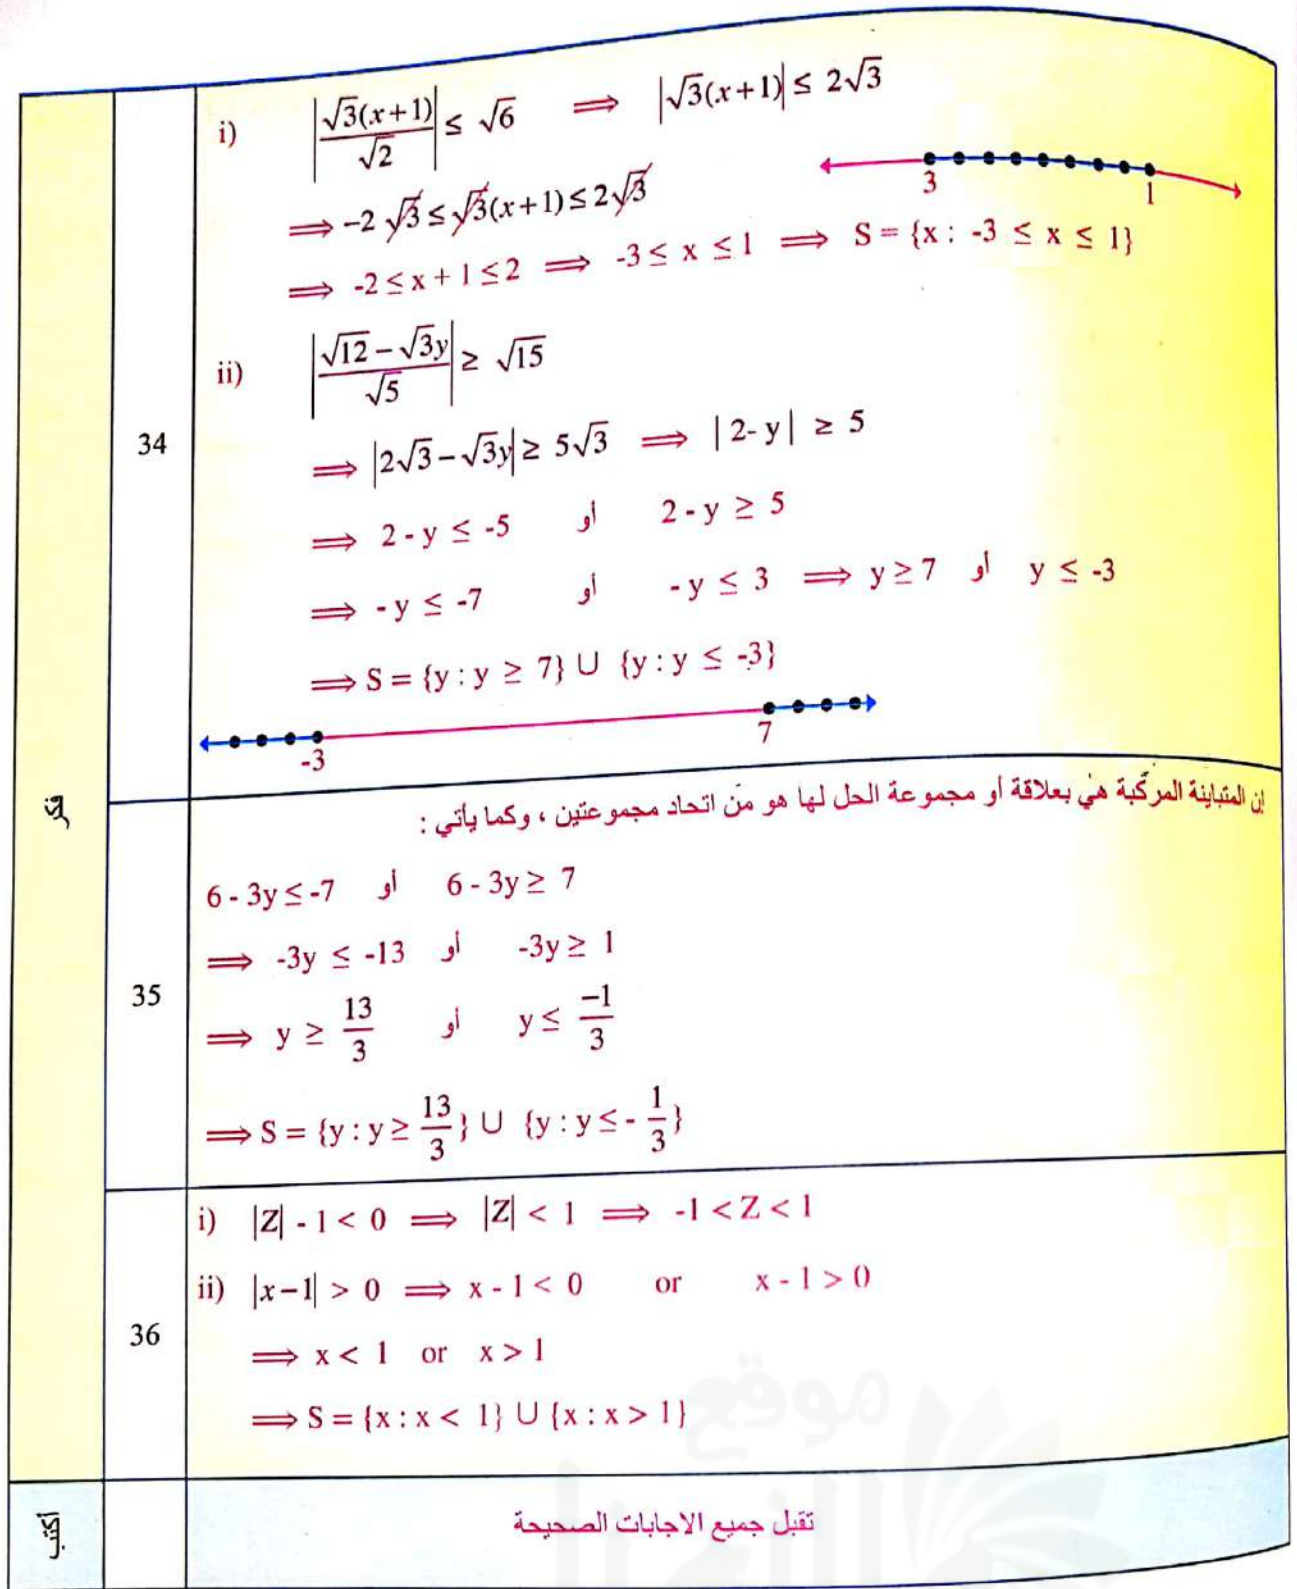 i) |√3(x+1)/√2| ≤ √6 ⟹ |√3(x+1)| ≤ 2√3
⟹ -2√3 ≤ √3(x+1) ≤ 2√3
3 1
⟹ -2 ≤ x + 1 ≤ 2 ⟹ -3 ≤ x ≤ 1 ⟹ S = {x : -3 ≤ x ≤ 1}
ii) |(√12 - √3y)/√5| ≥ √15
34
⟹ |2√3 - √3y| ≥ 5√3 ⟹ | 2- y | ≥ 5
⟹ 2 - y ≤ -5 أو 2 - y ≥ 5
⟹ - y ≤ -7 أو - y ≤ 3 ⟹ y ≥ 7 أو y ≤ -3
⟹ S = {y : y ≥ 7} ∪ {y : y ≤ -3}
-3 7
إن المتباينة المركبة هي بعلاقة أو مجموعة الحل لها هو من اتحاد مجموعتين ، وكما يأتي :
6 - 3y ≤ -7 أو 6 - 3y ≥ 7
⟹ -3y ≤ -13 أو -3y ≥ 1
35
⟹ y ≥ 13/3 أو y ≤ -1/3
⟹ S = {y : y ≥ 13/3} ∪ {y : y ≤ - 1/3}
i) |Z| - 1 < 0 ⟹ |Z| < 1 ⟹ -1 < Z < 1
ii) |x-1| > 0 ⟹ x - 1 < 0 or x - 1 > 0
36
⟹ x < 1 or x > 1
⟹ S = {x : x < 1} ∪ {x : x > 1}
موقع
تقبل جميع الاجابات الصحيحة